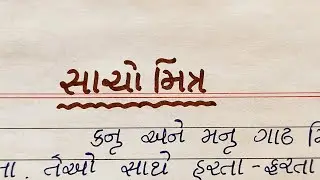 સાચો મિત્ર
કનુ અને મનુ ગાઢ
તેઓ સાથે હરતા-ફરતા